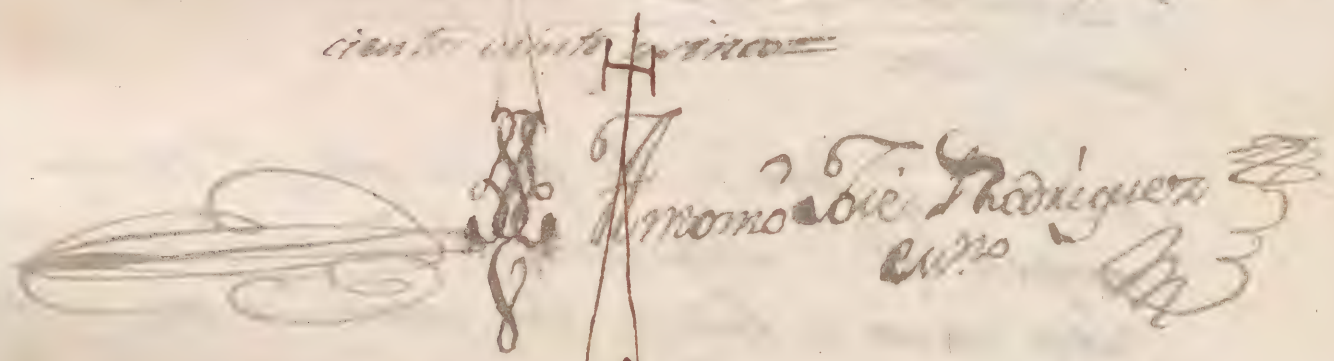 ciento veinte y cinco =
Antonio José Rodriguez
Essno